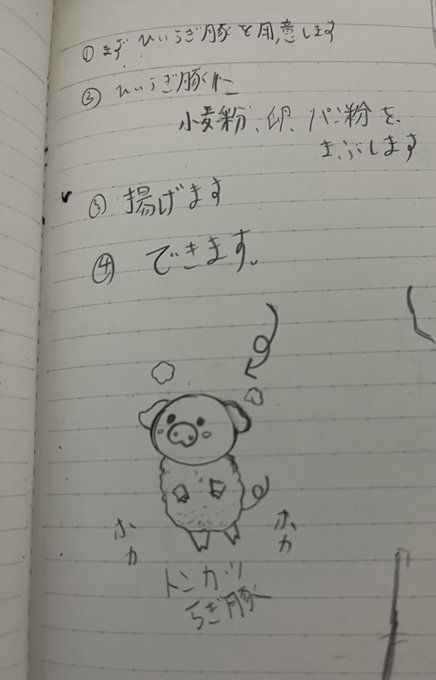 ① まず ひいらぎ豚を用意します
② ひいらぎ豚に
小麦粉、卵、パン粉を
まぶします
③ 揚げます
④ できます。
ホカ
ホカ
トンカツ
らぎ豚